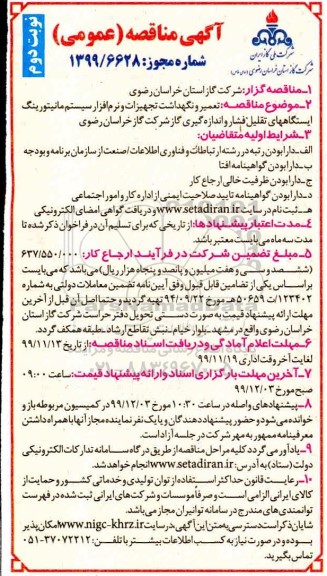 نوبت دوم
آگهی مناقصه (عمومی)
شماره مجوز: ۱۳۹۹/۶۶۲۸
شرکت ملی گاز ایران
شرکت گاز استان خراسان رضوی
۱ـ مناقصه گزار: شرکت گاز استان خراسان رضوی
۲ـ موضوع مناقصه: تعمیر و نگهداشت تجهیزات و نرم افزار سیستم مانیتورینگ
ایستگاههای تقلیل فشار و اندازه گیری گاز شرکت گاز خراسان رضوی
۳ـ شرایط اولیه متقاضیان:
الف ـ دارا بودن رتبه در رشته ارتباطات و فناوری اطلاعات/صنعت از سازمان برنامه و بودجه
ب ـ دارا بودن گواهینامه افتا
ج ـ دارا بودن ظرفیت خالی ارجاع کار
د ـ دارا بودن گواهینامه تایید صلاحیت ایمنی از اداره کار و امور اجتماعی
هـ ـ ثبت نام در سایت www.setadiran.ir و دریافت گواهی امضای الکترونیکی
۴ـ مدت اعتبار پیشنهادها: از تاریخی که برای تسلیم آن در فراخوان ذکر شده تا
مدت سه ماه می بایست معتبر باشد.
۵ـ مبلغ تضمین شرکت در فرآیند ارجاع کار: ۶۳۷/۵۵۰/۰۰۰
(ششصد و سی و هفت میلیون و پانصد و پنجاه هزار ریال) می باشد که می بایست
براساس یکی از تضامین قابل قبول وفق آیین نامه تضمین معاملات دولتی به شماره
۱۲۳۴۰۲/ت۵۰۶۵۹هـ مورخ ۹۴/۰۹/۲۲ تهیه گردید و حتما اصل آن قبل از آخرین
مهلت ارائه پیشنهاد قیمت به صورت دستی تحویل دفتر حراست شرکت گاز استان
خراسان رضوی واقع در مشهد ـ بلوار خیام ـ نبش تقاطع ارشاد ـ طبقه همکف گردد.
۶ـ مهلت اعلام آمادگی و دریافت اسناد مناقصه: از تاریخ ۹۹/۱۱/۱۲
لغایت آخر وقت اداری ۹۹/۱۱/۱۹
۷ـ آخرین مهلت بارگزاری اسناد و ارائه پیشنهاد قیمت: ساعت ۰۹:۰۰
صبح مورخ ۹۹/۱۲/۰۳
۸ـ پیشنهادهای واصله در ساعت ۱۰:۳۰ مورخ ۹۹/۱۲/۰۳ در کمیسیون مربوطه باز و
خوانده می شود و حضور پیشنهاد دهندگان و یا یک نفر نماینده مجاز آنها با همراه داشتن
معرفینامه ممهور به مهر شرکت در جلسه آزاد است.
۹ـ یادآور می گردد کلیه مراحل مناقصه از طریق درگاه سامانه تدارکات الکترونیکی
دولت (ستاد) به آدرس: www.setadiran.ir انجام خواهد شد.
۱۰ـ رعایت قانون حداکثر استفاده از توان تولیدی و خدماتی کشور و حمایت از
کالای ایرانی الزامی است و صرفاً موسسات و شرکت های ایرانی ثبت شده در فهرست
توانمندی های مندرج در سامانه توانیران مجاز می باشد.
شایان ذکر است دسترسی به متن این آگهی در سایت www.nigc-khrz.ir امکان پذیر
بوده و در صورت نیاز به کسب اطلاعات بیشتر با تلفن: ۳۷۰۷۲۲۱۲-۰۵۱
تماس بگیرید.